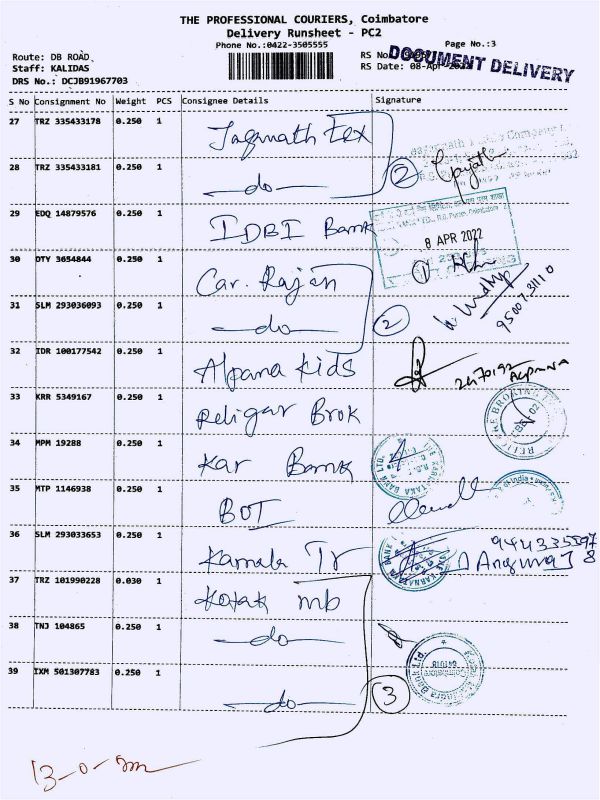 THE PROFESSIONAL COURIERS, Coimbatore
Delivery Runsheet - PC2
Phone No.:0422-3505555
Page No.:3
Route: DB ROAD
Staff: KALIDAS
DRS No.: DCJB91967703
RS No.
RS Date: 08-Apr-2022
DOCUMENT DELIVERY
S No Consignment No Weight PCS Consignee Details Signature
27 TRZ 335433178 0.250 1 Jagannath Tex
28 TRZ 335433181 0.250 1 do 2
29 EDQ 14879576 0.250 1 IDBI Bank
8 APR 2022
30 DTY 3654844 0.250 1 Car. Rajan 1
31 SLM 293036093 0.250 1 do 2
9500731110
32 IDR 100177542 0.250 1 Alpana Kids
2470192 Alpana
33 KRR 5349167 0.250 1 Religar Brok
34 MPM 19288 0.250 1 Kar Bank
35 MTP 1146938 0.250 1 BOI
36 SLM 293033653 0.250 1 Kamala Tr
37 TRZ 101990228 0.030 1 Kotak mb
38 TNJ 104865 0.250 1 do
39 IXM 501307783 0.250 1 do 3